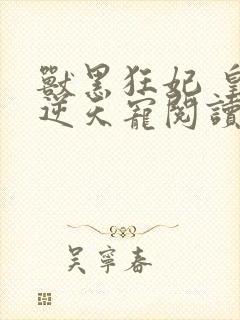 獸黑狂妃 皇
逆天寵閱讀
吳寧春